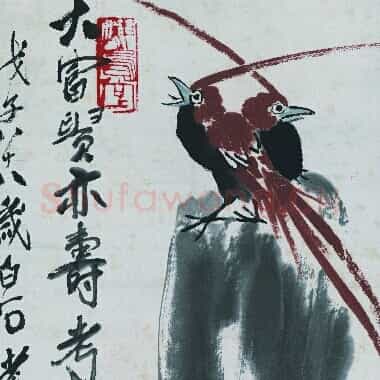 大富貴亦壽考
戊子八十八歲白石老